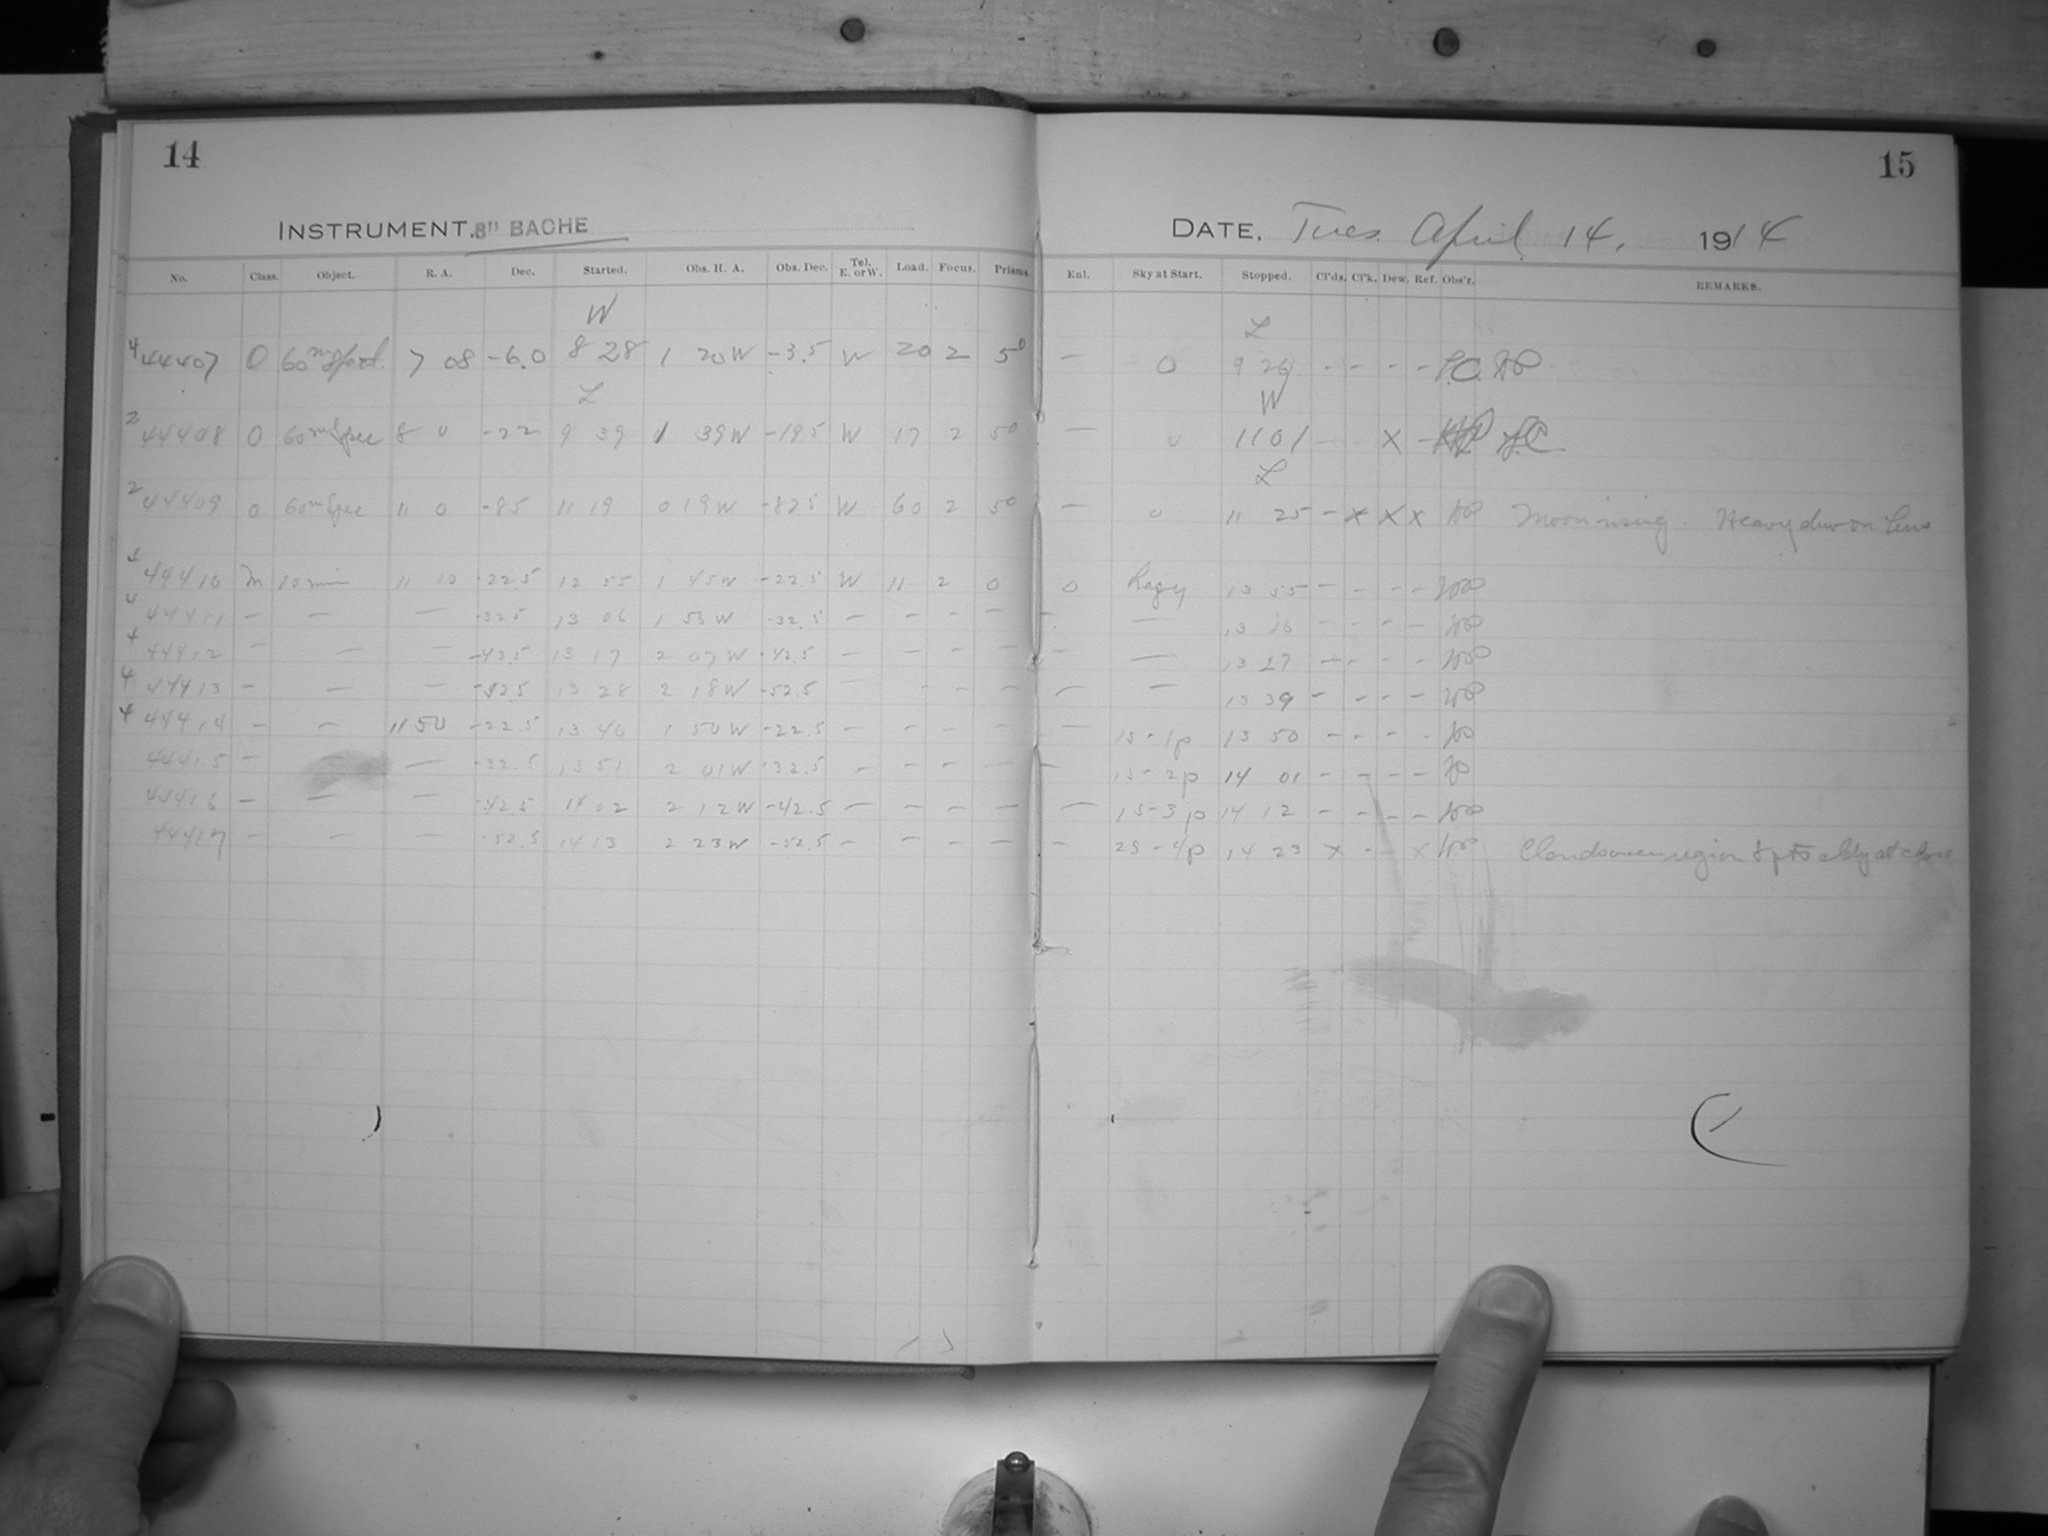 14
15
INSTRUMENT. 8" BACHE
DATE. Tues. April 14, 1914
No. Class. Object. R. A. Dec. Started. Obs. H. A. Obs. Dec. Tel. E. or W. Load. Focus. Prisms. Enl. Sky at Start. Stopped. Cl'ds. Cl'k. Dew. Ref. Obs'r. REMARKS.
W
L
4 44407 0 60m 7 08 -6.0 8 28 1 20 W -3.5 W 20 2 5° — 0 9 - - - -
L
W
2 44408 0 60m Spec 8 0 -22 9 39 1 39 W -19.5 W 17 2 5° — 0 11 01 X -
L
2 44409 0 60m Spec 11 0 -85 11 19 0 19 W -82.5 W 60 2 5° — 0 11 25 - X X X Moon rising. Heavy dew on lens
4 44410 M 10 min 11 10 -22.5 12 55 1 45 W -22.5 W 11 2 0 0 Hazy 13 55 - - - -
44411 — — — -32.5 13 06 1 56 W -32.5 — - - — — — 13 16 - - - -
4 44412 — — — -42.5 13 17 2 07 W -42.5 — - - - — — — 13 27 - - - -
4 44413 — — — -52.5 13 28 2 18 W -52.5 — - - - — — — 13 39 - - - -
4 44414 — — 11 50 -22.5 13 40 1 50 W -22.5 — - - - — — 1s-1p 13 50 - - - -
44415 — — — -32.5 13 51 2 01 W -32.5 — - - - — — 1s-2p 14 01 - - - -
44416 — — — -42.5 14 02 2 12 W -42.5 — - - - — — 1s-3p 14 12 - - - -
44417 — — — -52.5 14 13 2 23 W -52.5 — - - - — — 2s-4p 14 23 X - - X Clouds over region & pts at close